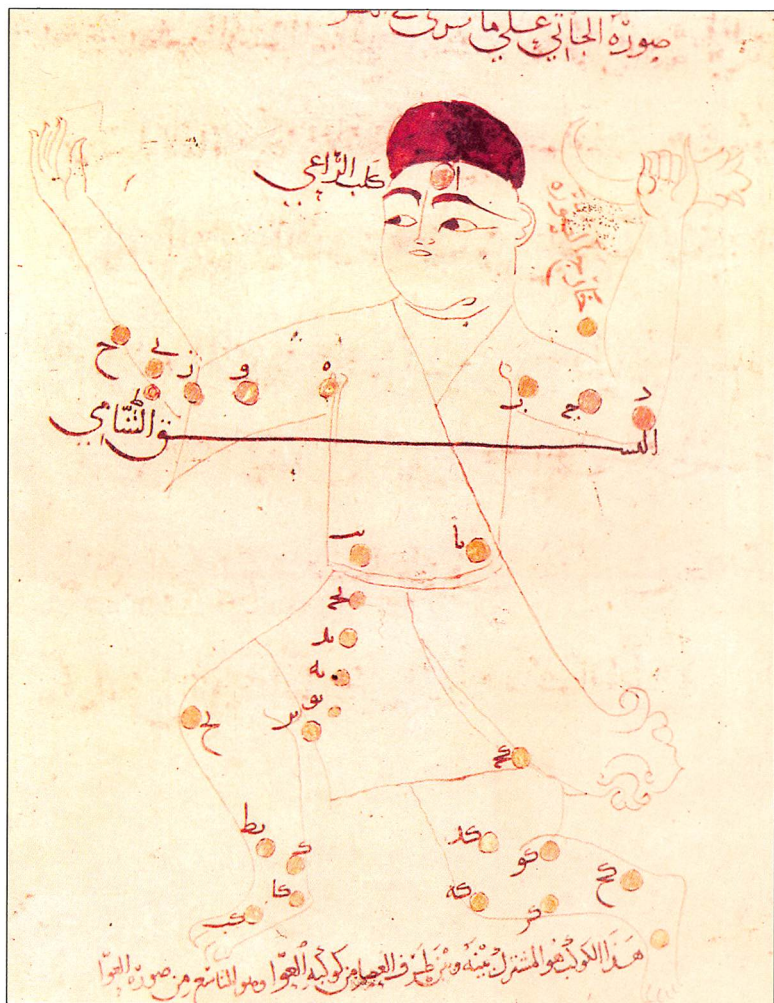 صورة الجاثي علي ما يرى في
ا
كلب الراعي
خارج الصورة
ح
ى
ز
و
ه
ب
ج
د
ط
النسق الشامي
يا
يب
يج
يد
يه
يو
يز
يح
كج
يط
ك
كد
كو
كح
كا
كب
كه
كز
هذا الكوكب هو المشترك بينه وبين طرف العصا من كوكبة العوا وهو التاسع من صورة العوا